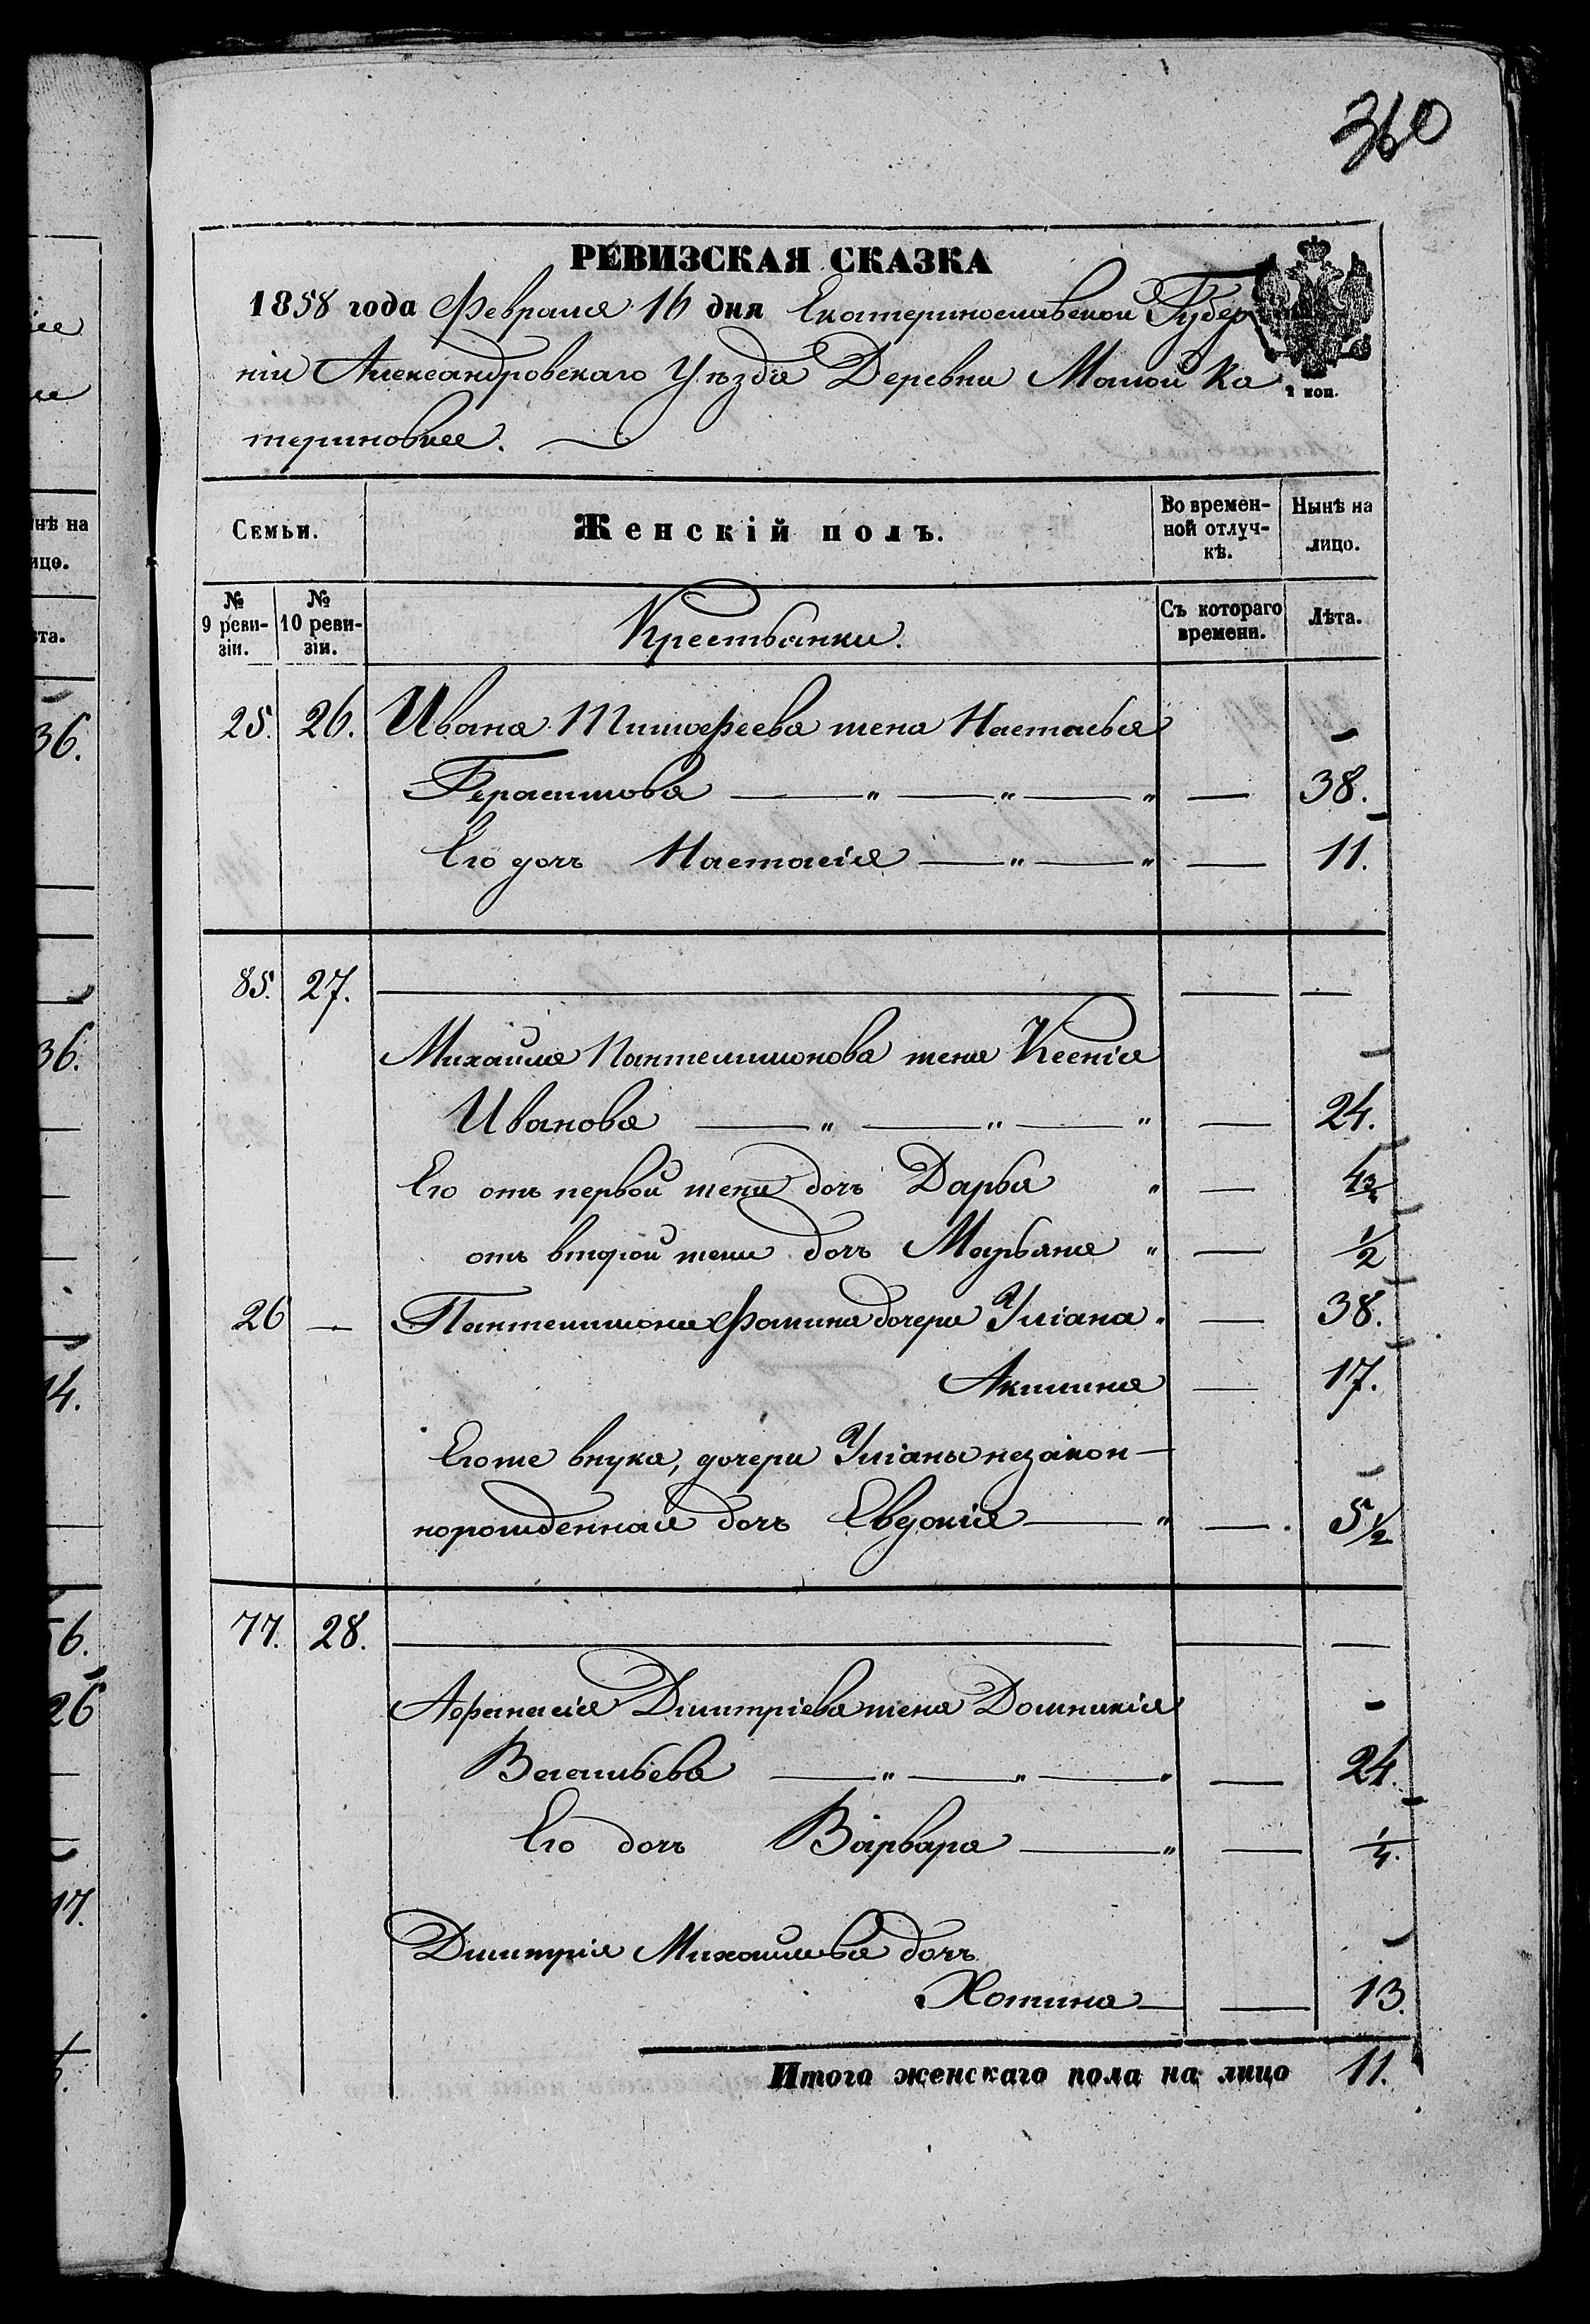 360
РЕВИЗСКАЯ СКАЗКА
1858 года Февраля 16 дня Екатеринославской Губер
ніи Александровскаго Уѣзда Деревни Малой Ка
2 коп.
териновке.
Семьи.
Женскій полъ.
Во времен-
ной отлуч-
кѣ.
Нынѣ на
лицо.
№
9 реви-
зіи.
№
10 реви-
зіи.
Крестьянки.
Съ котораго
времени.
Лѣта.
25. 26. Ивана Тимофеева жена Настасья
Герасимова — „ — „ — „ — 38.
Его дочь Настасія — „ — „ — 11.
85. 27. — — —
Михайла Пантелимонова жена Ксенія
Иванова — „ — „ — „ — 24.
Его отъ первой жены дочь Дарья „ — 4¾
отъ второй жены дочь Марьяна „ — ½
26 — Пантелимона Фомина дочери Уліана „ — 38.
Акилина — 17.
Егоже внука, дочери Уліаны незакон-
норожденная дочь Евдокія — „ — 5½
77. 28. — — —
Афанасія Дмитріева жена Домникія
Васильева — „ — „ — „ — 24.
Его дочь Варвара — „ — ¼.
Дмитрія Михайлова дочь
Хотина — — 13.
Итого женскаго пола на лицо 11.
нѣ на
лицо.
ѣта.
36.
36.
14.
56.
26
17.